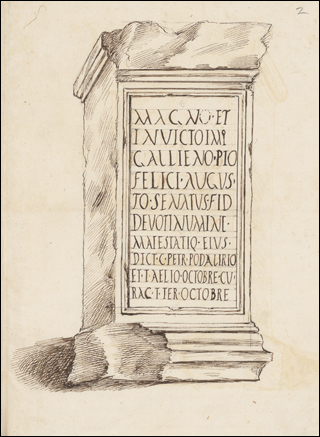 2
MAGNO·ET
INVICTOIMP
GALLIENO·PIO
FELICI·AUGUS·
TO·SENATUS·FID
DEVOTI·NUMINI·
MAIESTATIQ·EIUS·
DICT·C·PETR·PODALIRIO
ET·T·AELIO·OCTOBRE·CU·
RAC·T·FER·OCTOBRE